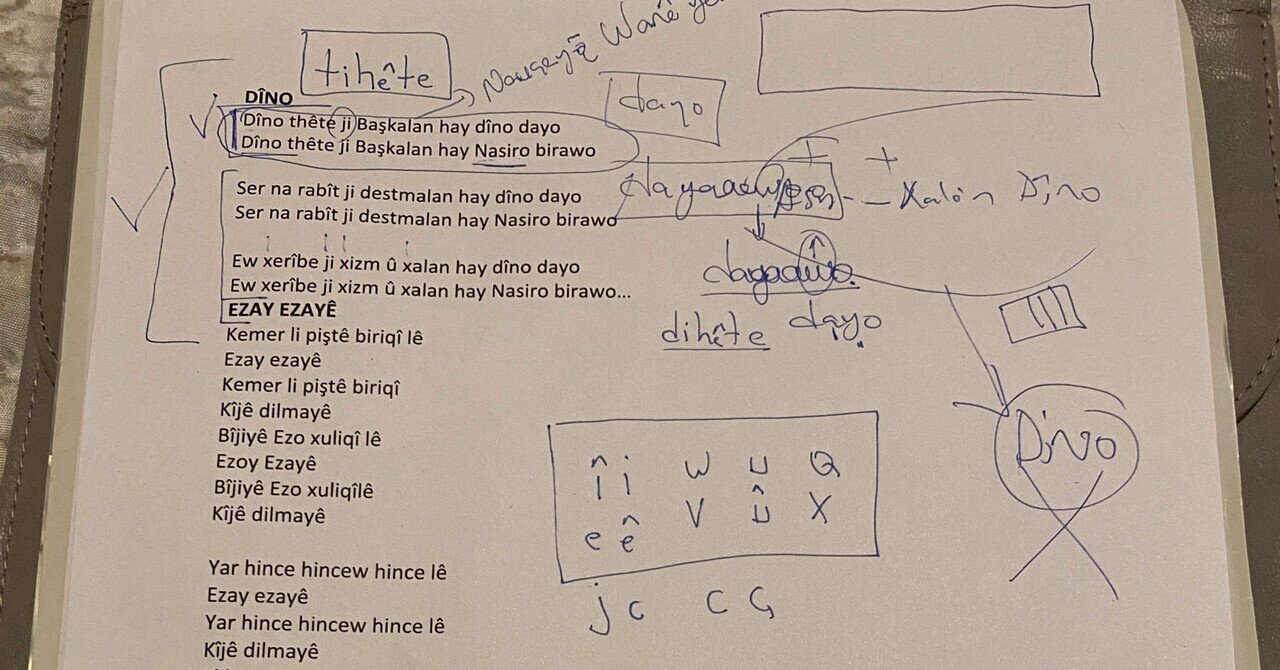 tihête
Wanê
dayo
DÎNO
Dîno thête ji Başkalan hay dîno dayo
Dîno thête ji Başkalan hay Nasiro birawo
Ser na rabît ji destmalan hay dîno dayo
Ser na rabît ji destmalan hay Nasiro birawo
Xalên Dîno
Ew xerîbe ji xizm û xalan hay dîno dayo
Ew xerîbe ji xizm û xalan hay Nasiro birawo...
dihête dayo
EZAY EZAYÊ
Kemer li piştê biriqî lê
Ezay ezayê
Kemer li piştê biriqî
Kîjê dilmayê
Bîjiyê Ezo xuliqî lê
Ezoy Ezayê
Bîjiyê Ezo xuliqîlê
Kîjê dilmayê
Dîno
î i W U Q
e ê V Û X
j c C Ç
Yar hince hincew hince lê
Ezay ezayê
Yar hince hincew hince lê
Kîjê dilmayê